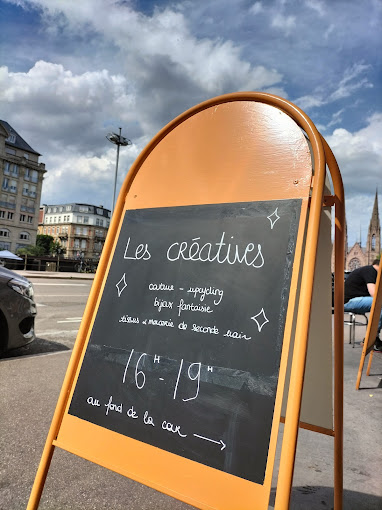 Les créatives
couture - upcycling
bijoux fantaisie
tissus & mercerie de seconde main
16H - 19H
au fond de la cour →